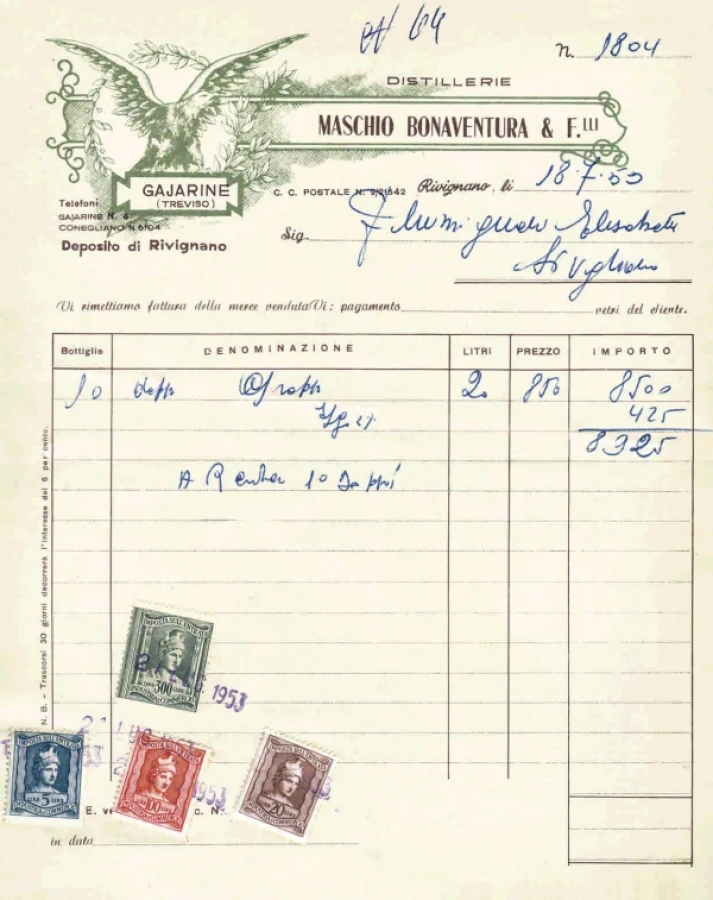 N 64
N. 1804
DISTILLERIE
MASCHIO BONAVENTURA & F.LLI
GAJARINE
(TREVISO)
C. C. POSTALE N. 9/21642 Rivignano, li 18.7.53
Telefoni
GAJARINE N. 4
CONEGLIANO N 6104
Deposito di Rivignano
Sig.
Vi rimettiamo fattura della merce venduta Vi: pagamento vetri del cliente.
Bottiglie DENOMINAZIONE LITRI PREZZO IMPORTO
10 20 850 8500
425
8325
A 10
N. B. - Trascorsi 30 giorni decorrerà l'interesse del 6 per cento.
IMPOSTA SULL'ENTRATA
LIRE 300 LIRE
INDUSTRIA E COMMERCIO
LUG. 1953
IMPOSTA SULL'ENTRATA
LIRE 5 LIRE
INDUSTRIA E COMMERCIO
IMPOSTA SULL'ENTRATA
LIRE 100 LIRE
INDUSTRIA E COMMERCIO
1953
IMPOSTA SULL'ENTRATA
LIRE 20 LIRE
INDUSTRIA E COMMERCIO
c. N.
in data